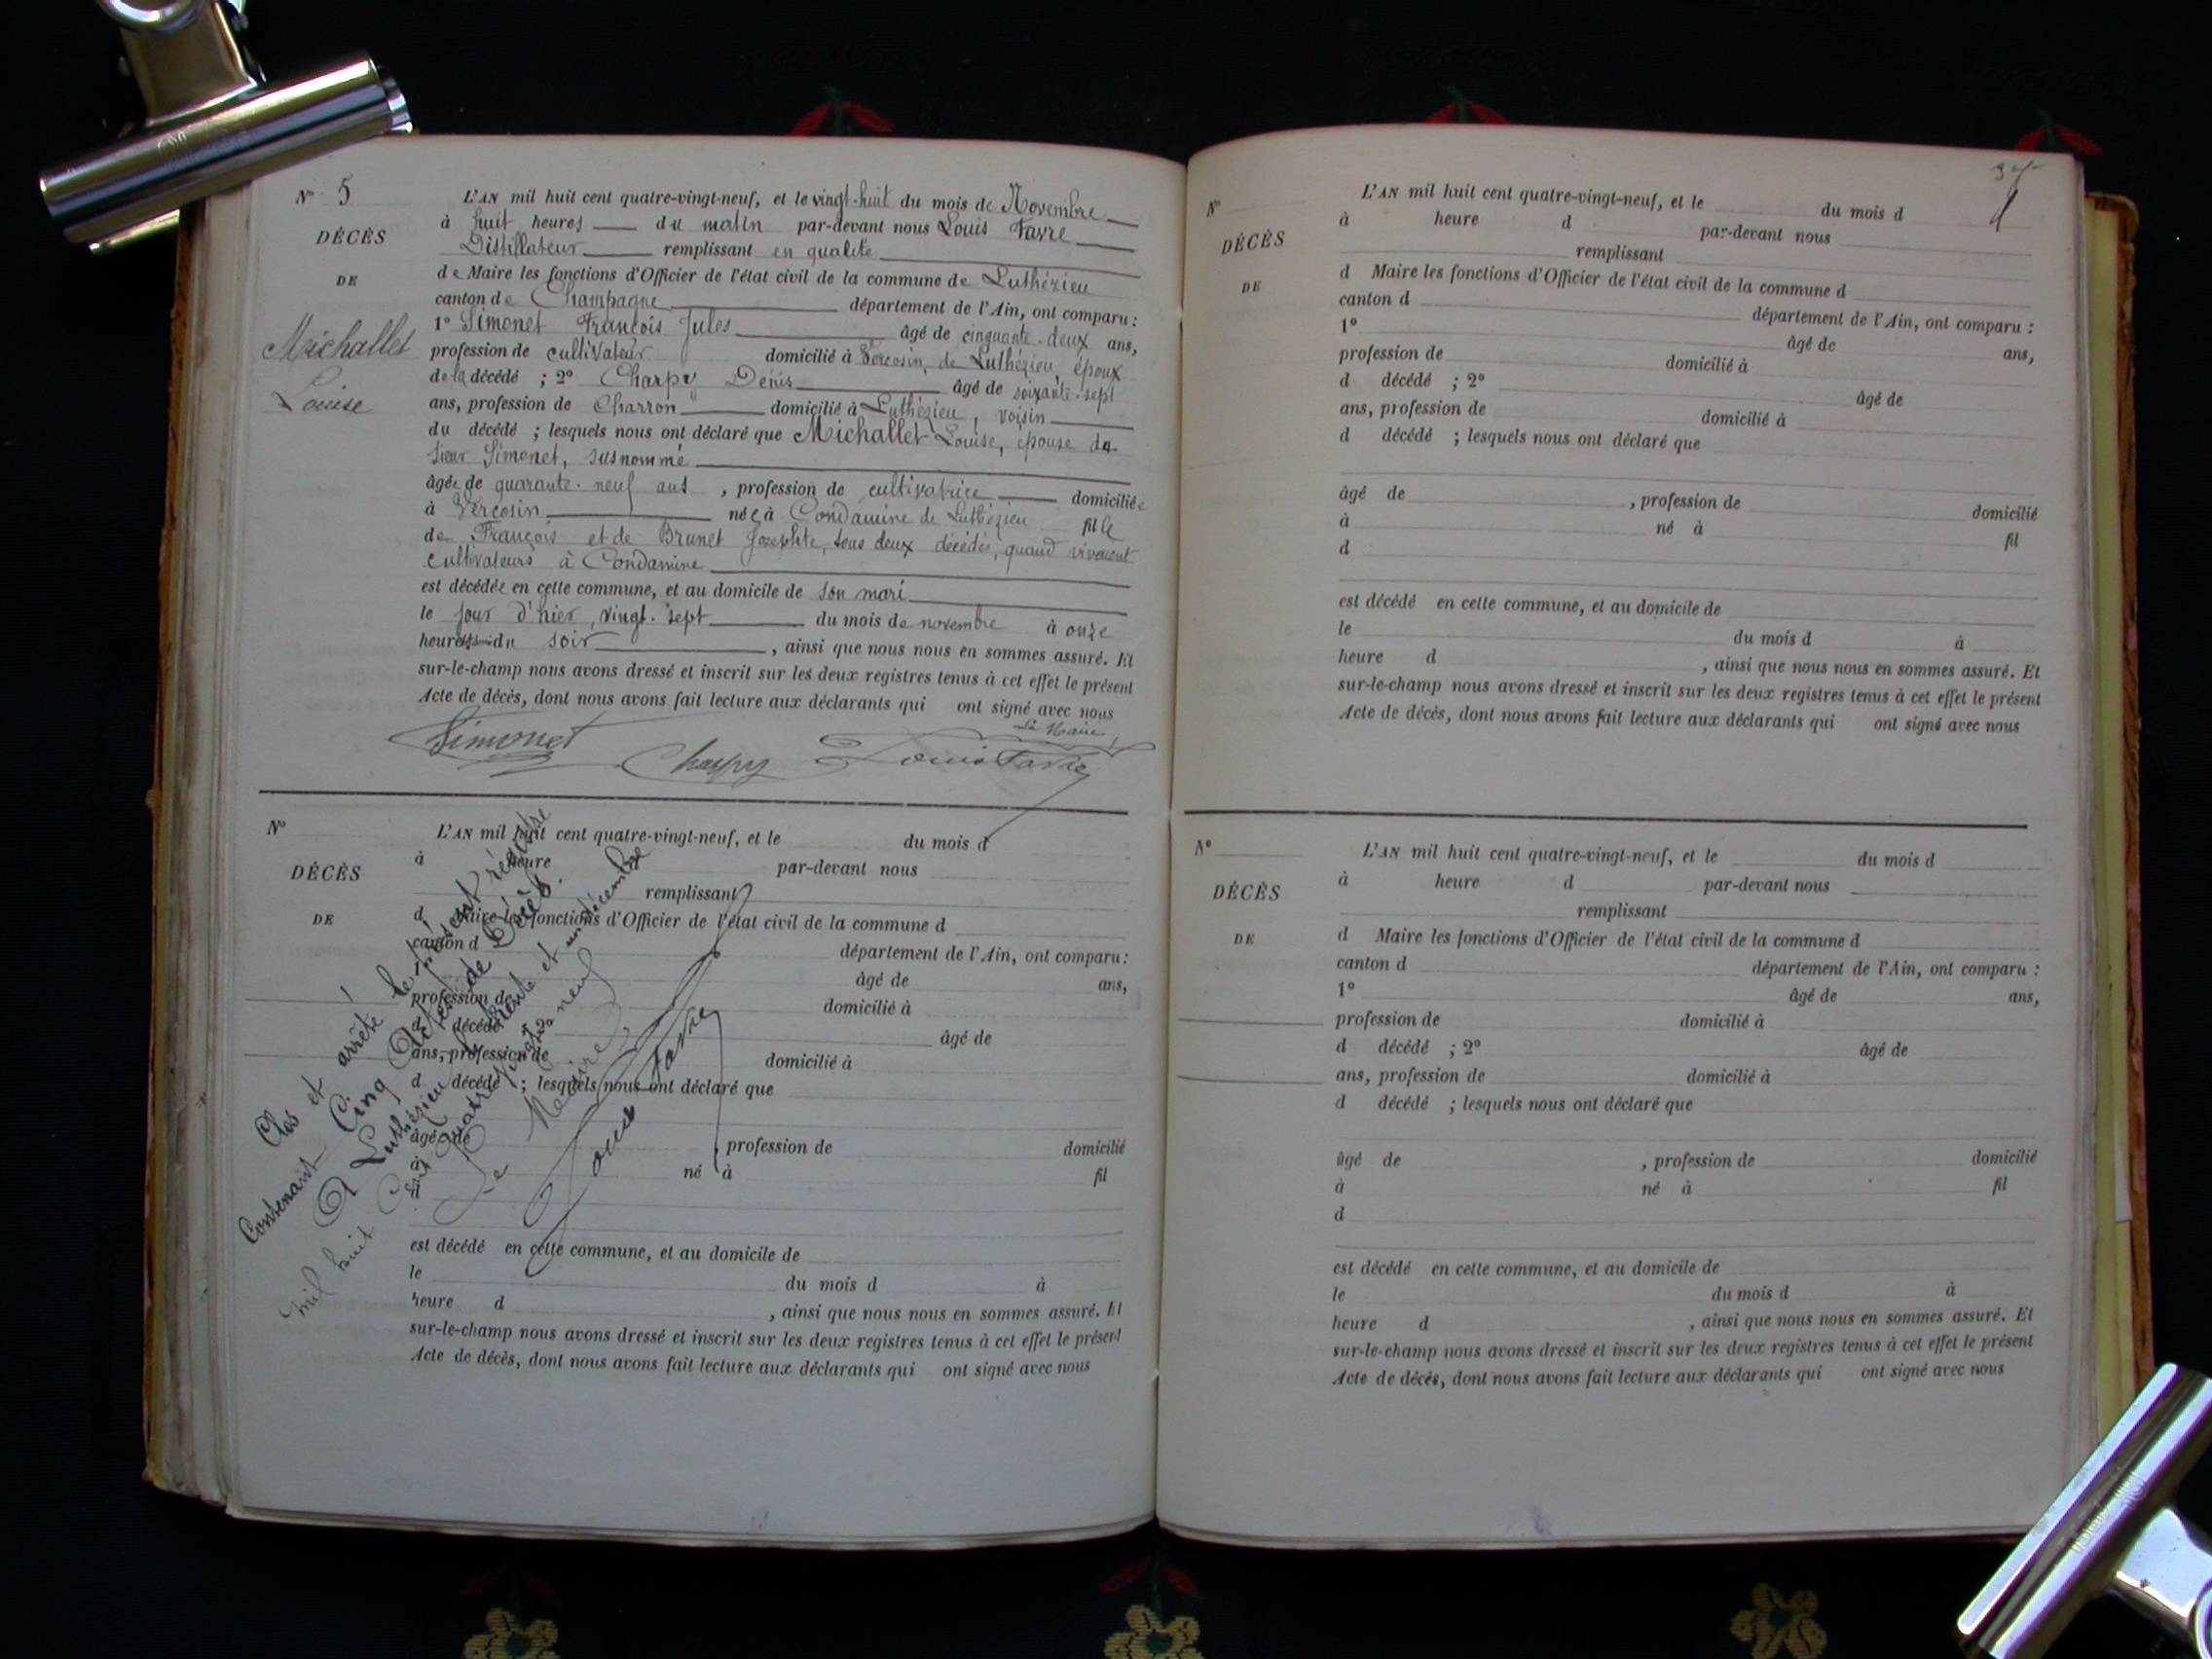 N° 5
DÉCÈS
DE
Michallet
Louise
L'AN mil huit cent quatre-vingt-neuf, et le vingt-huit du mois de Novembre
à huit heures du matin par-devant nous Louis Favre
Distillateur remplissant en qualité
de Maire les fonctions d'Officier de l'état civil de la commune de Luthézieu
canton de Champagne département de l'Ain, ont comparu :
1° Simonet François Jules âgé de cinquante-deux ans,
profession de cultivateur domicilié à Vercosin, de Luthézieu, époux
de la décédé ; 2° Charpy Denis âgé de soixante-sept
ans, profession de Charron domicilié à Luthézieu, voisin
du décédé ; lesquels nous ont déclaré que Michallet Louise, épouse du
sieur Simonet, susnommé
âgée de quarante-neuf ans, profession de cultivatrice domiciliée
à Vercosin née à Condamine de Luthézieu fille
de François et de Brunet Josephte, tous deux décédés, quand vivaient
cultivateurs à Condamine
est décédée en cette commune, et au domicile de son mari
le jour d'hier, vingt-sept du mois de novembre à onze
heures du soir, ainsi que nous nous en sommes assuré. Et
sur-le-champ nous avons dressé et inscrit sur les deux registres tenus à cet effet le présent
Acte de décès, dont nous avons fait lecture aux déclarants qui ont signé avec nous
Le Maire,
Simonet Charpy Louis Favre
N°
DÉCÈS
DE
L'AN mil huit cent quatre-vingt-neuf, et le du mois d
à heure d par-devant nous
remplissant
d Maire les fonctions d'Officier de l'état civil de la commune d
canton d département de l'Ain, ont comparu :
âgé de ans,
profession de domicilié à
d décédé ; 2° âgé de
ans, profession de domicilié à
d décédé ; lesquels nous ont déclaré que
âgé de , profession de domicilié
à né à fil
d
est décédé en cette commune, et au domicile de
le du mois d à
heure d , ainsi que nous nous en sommes assuré. Et
sur-le-champ nous avons dressé et inscrit sur les deux registres tenus à cet effet le présent
Acte de décès, dont nous avons fait lecture aux déclarants qui ont signé avec nous
Clos et arrêté le présent régistre
Contenant Cinq Actes de Décès.
A Luthézieu le trente et un décembre
mil huit Cent Quatre Vingt neuf
Le Maire,
Louis Favre
37
N°
DÉCÈS
DE
L'AN mil huit cent quatre-vingt-neuf, et le du mois d
à heure d par-devant nous
remplissant
d Maire les fonctions d'Officier de l'état civil de la commune d
canton d département de l'Ain, ont comparu :
1° âgé de ans,
profession de domicilié à
d décédé ; 2° âgé de
ans, profession de domicilié à
d décédé ; lesquels nous ont déclaré que
âgé de , profession de domicilié
à né à fil
d
est décédé en cette commune, et au domicile de
le du mois d à
heure d , ainsi que nous nous en sommes assuré. Et
sur-le-champ nous avons dressé et inscrit sur les deux registres tenus à cet effet le présent
Acte de décès, dont nous avons fait lecture aux déclarants qui ont signé avec nous
N°
DÉCÈS
DE
L'AN mil huit cent quatre-vingt-neuf, et le du mois d
à heure d par-devant nous
remplissant
d Maire les fonctions d'Officier de l'état civil de la commune d
canton d département de l'Ain, ont comparu :
1° âgé de ans,
profession de domicilié à
d décédé ; 2° âgé de
ans, profession de domicilié à
d décédé ; lesquels nous ont déclaré que
âgé de , profession de domicilié
à né à fil
d
est décédé en cette commune, et au domicile de
le du mois d à
heure d , ainsi que nous nous en sommes assuré. Et
sur-le-champ nous avons dressé et inscrit sur les deux registres tenus à cet effet le présent
Acte de décès, dont nous avons fait lecture aux déclarants qui ont signé avec nous